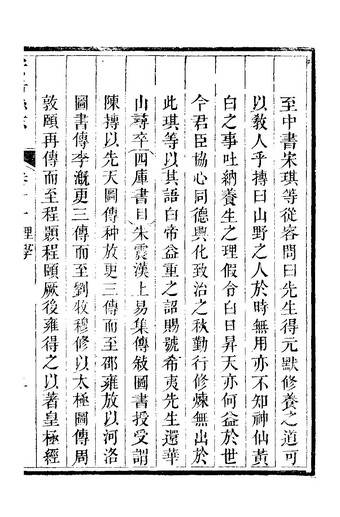 至中書宋琪等從容問曰先生得元默修養之道可
以敎人乎摶曰山野之人於時無用亦不知神仙黃
白之事吐納養生之理假令白日昇天亦何益於世
今君臣協心同德興化致治之秋勤行修煉無出於
此琪等以其語白帝益重之詔賜號希夷先生還華
山尋卒四庫書目朱震漢上易集傳敘圖書授受謂
陳摶以先天圖傳种放更三傳而至邵雍放以河洛
圖書傳李漑更三傳而至劉牧穆修以太極圖傳周
敦頤再傳而至程顥程頤厥後雍得之以著皇極經
理學